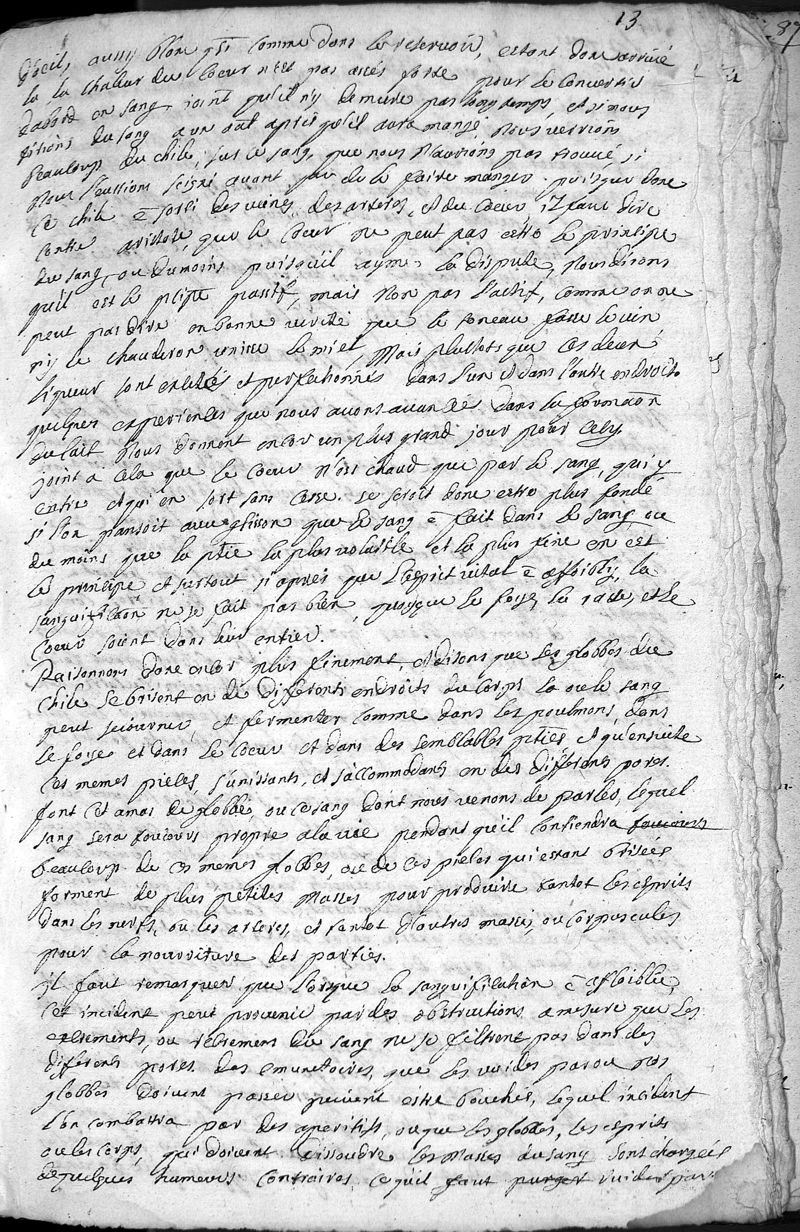 13
87
d'oeil, aussy blanc qsi comme dans le reservoir, estant donc arrivé
la, la chaleur du Coeur n'est pas assés forte pour le convertir
dabord en sang, joint qu'il n'y demeure pas longtemps, et si nous
tirions du sang a un apres qu'il aura mangé, nous verrions
beaucoup du chile, sur le sang, que nous n'aurions pas trouvé, si
nous l'eussions seigné avant que de le faire manger. puisque donc
ce chile e sorti des veines, des arteres, et du Coeur, il faut dire
contre aristote, que le Coeur ne peut pas estre le principe
du sang, ou dumoins puisqu'il ayme la dispute, nous dirons
qu'il est le pipe passif, mais non pas l'actif, comme on ne
peut pas dire en bonne verité que le toneau fasse le vin
ny le chauderon le miel, Mais plustots que ces deux
liqueur sont et perfectionnés dans l'un et dans l'autre endroit.
quelques experiences que nous avons avancés dans la formaon
du lait nous donnent encor un plus grand jour pour cely
joint a cela que le Coeur n'est chaud que par le sang, qui y
entre et qui en sort sans cesse. se seroit donc estre plus fondé
si l'on pansoit avec glisson que le sang e fait dans le sang ou
du moins que la ptie la plus volatile et la plus fine en est
le principe et surtout si apres que l'esprit vital e affoibly, la
sanguificaon ne se fait pas bien, quoyque le foye, la ratte, et le
Coeur soient dans leur entier.
Raisonnons donc encor plus finement, et disons que les globbes du
Chile se brisent en de differents endroits du corps la ou le sang
peut sejourner, et fermenter comme dans les poulmons, dans
le foye et dans le Coeur et dans des semblables pties et qu'ensuite
ces memes pieces, s'unissants, et s'accommodants en des differents pores.
font cet amas de globbe, ou ce sang dont nous venons de parler, lequel
sang sera toujours propre a la vie pendant qu'il contiendra toujours
beaucoup de ces memes globbes, ou de ces pieces qui estant brisées
forment de plus petites masses pour produire tantot les esprits
dans les nerfs, ou les arteres, et tantot d'autres masses, ou corpuscules
pour la nourriture des parties.
il faut remarquer que lorsque la sanguification e affoiblie,
cet incident peut provenir par des obstructions a mesure que les
excrements, ou recrement du sang ne se filtrent pas dans des
differents pores des emunctoires, que les vuides par ou nos
globbes doivent passer peuvent estre bouchés, lequel incident
l'on combattra par des aperitifs, ou que les globbes, les esprits
ou les corps, qui doivent dissoudre les masses du sang sont chargées
de quelques humeurs contraires ce qu'il faut purger vuider par